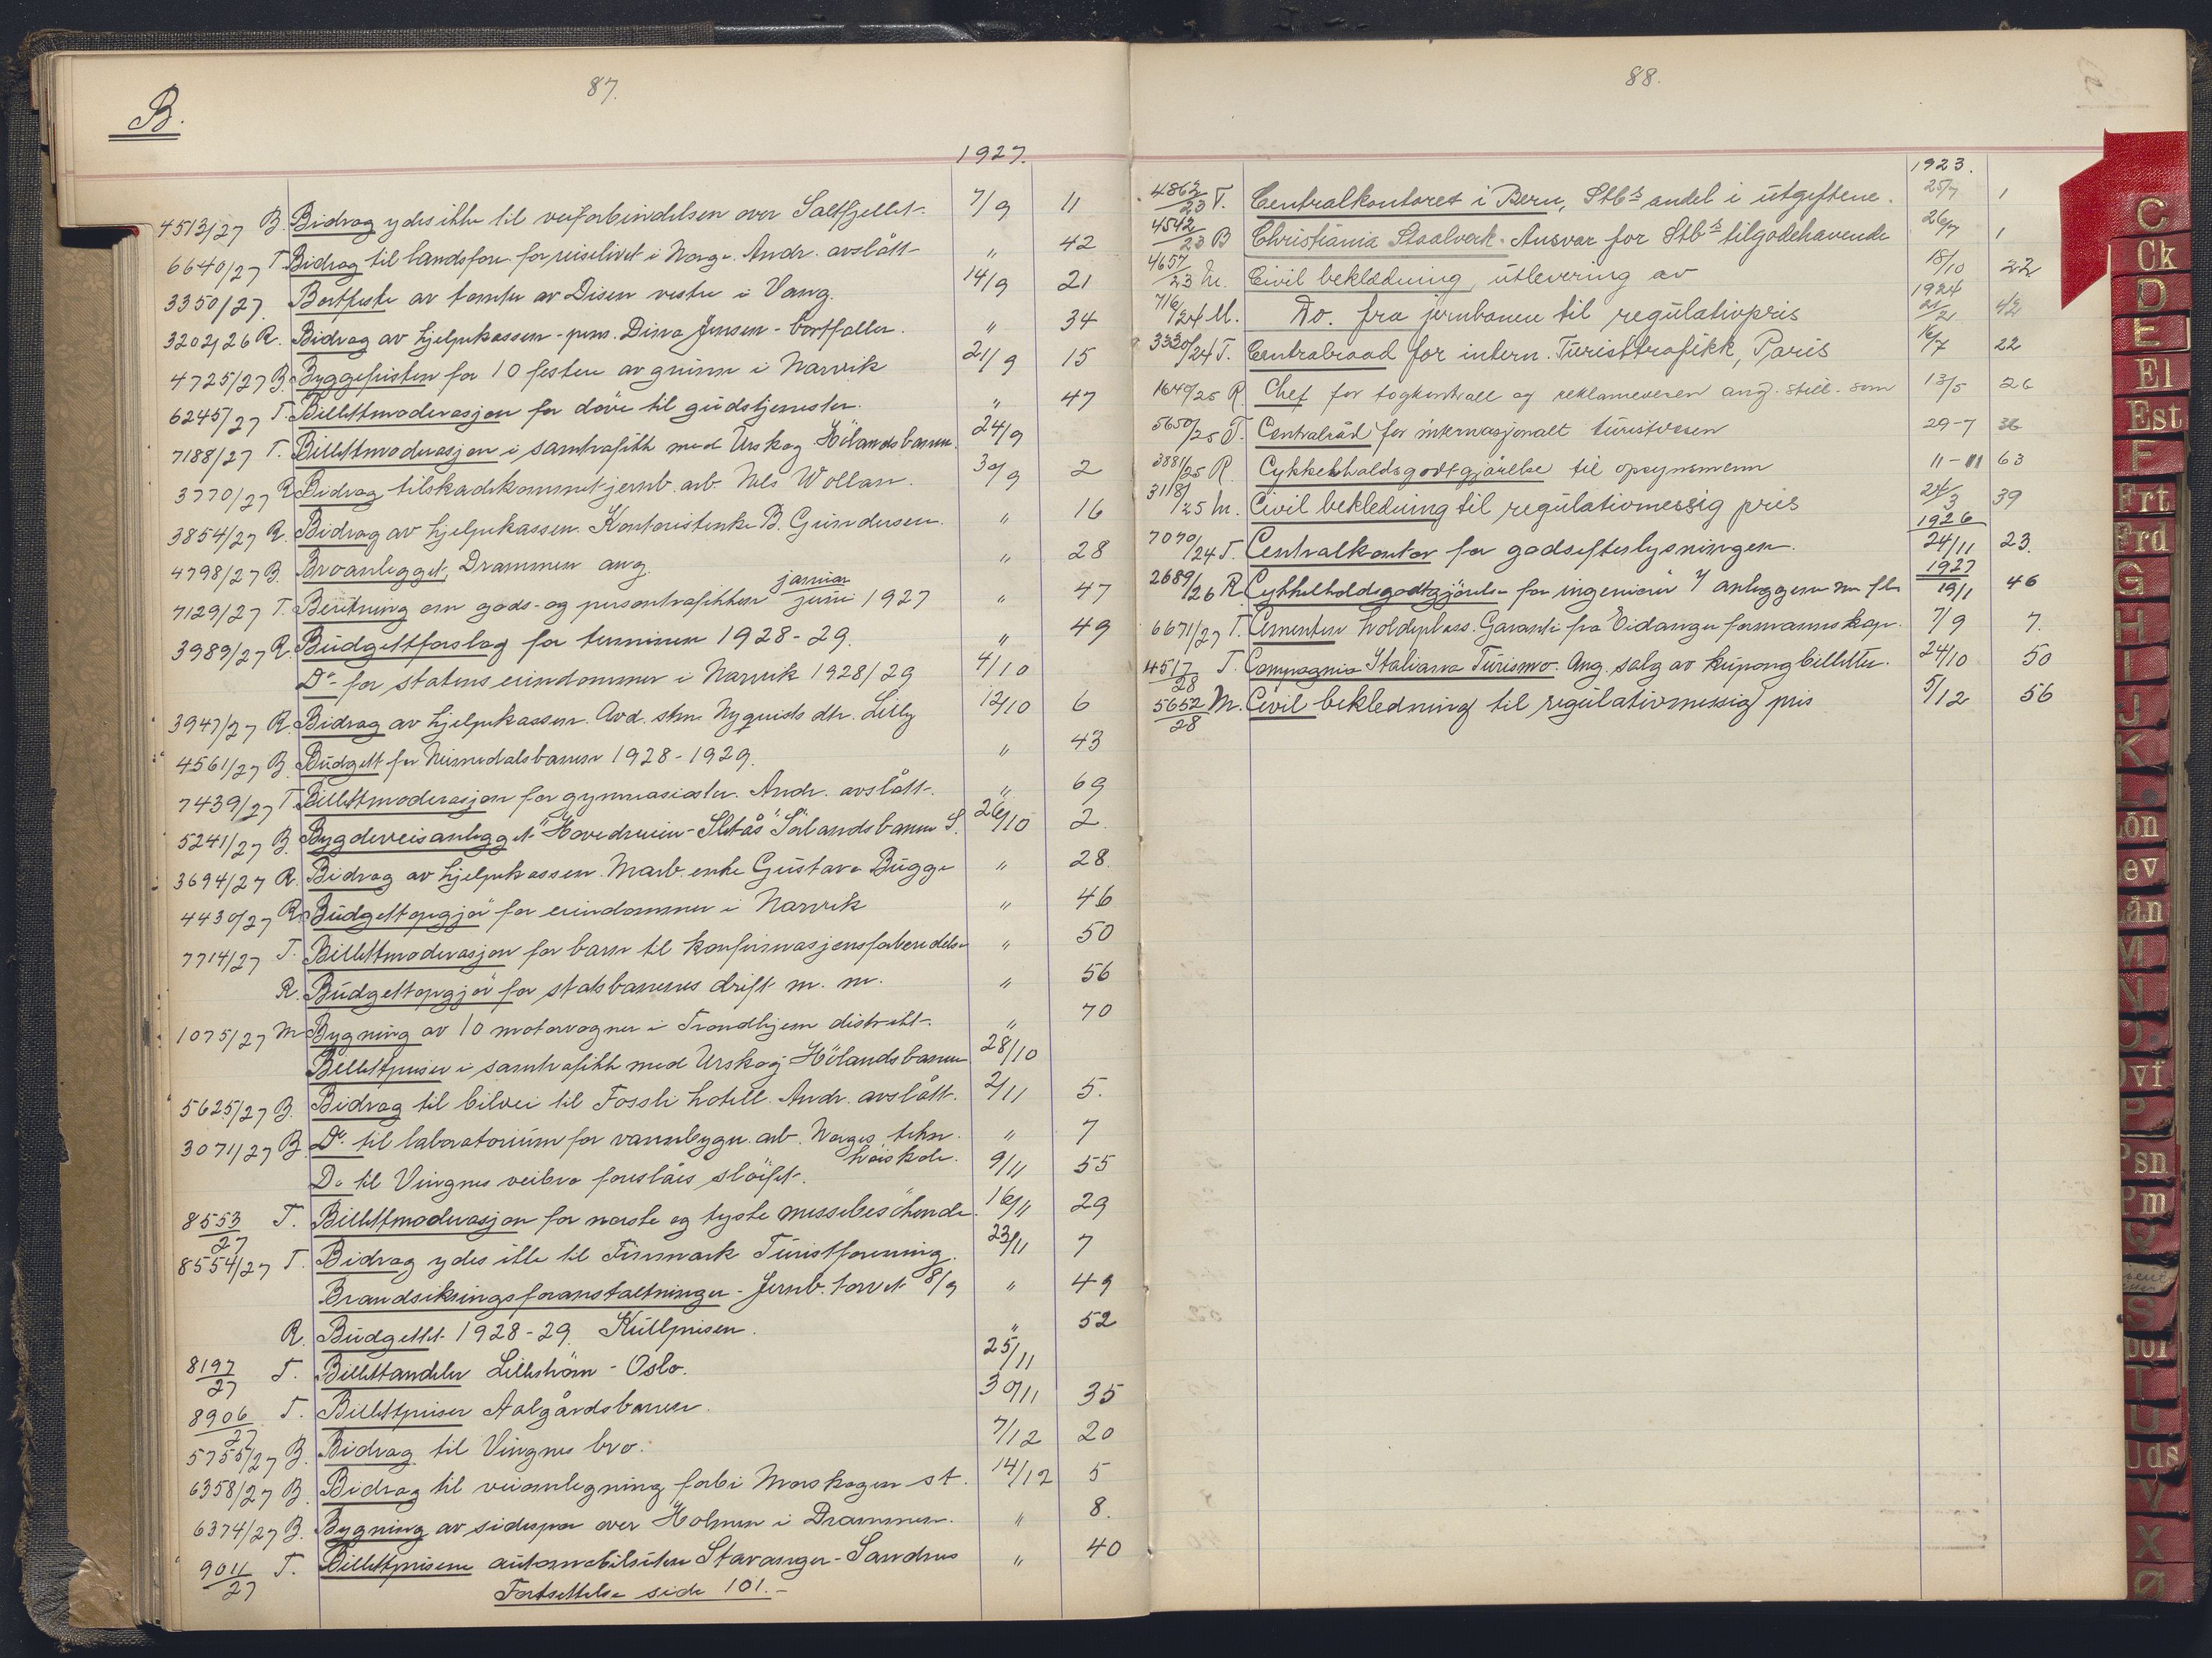 87.
B.
1927.
4513/27 B. Bidrag ydes ikke til veiforbindelsen over Saltfjellet. 7/9 11
6640/27 T. Bidrag til landsfor. for reiselivet i Norge. Andr. avslått " 42
3350/27. Bortfeste av tomter av Disen vestre i Vang. 14/9 21
3202/26 R. Bidrag av hjelpekassen - pens. Dina Jensen - bortfaller. " 34
4725/27 B. Byggefristen for 10 festere av grunn i Narvik 21/9 15
6245/27 T. Billettmoderasjon for döve til gudstjenester. " 47
7188/27 T. Billettmoderasjon i samtrafikk med Urskog Hölandsbanen. 24/9
3770/27 R. Bidrag tilskadekommet jernb. arb. Nels Wollan. 30/9 2
3854/27 R. Bidrag av hjelpekassen. Kontoristenke B. Gundersen. " 16
4798/27 B. Broanlegget, Drammen ang. " 28
7129/27 T. Beretning om gods- og persontrafikken januar juni 1927 " 47
3989/27 R. Budgettforslag for terminen 1928-29. " 49
Do- for statens eiendommer i Narvik 1928/29 4/10
3947/27 R. Bidrag av hjelpekassen. Avd. stm. Nyquists dtr. Lilly 12/10 6
4561/27 B. Budgett for Neimedalsbanen 1928-1929. " 43
7439/27 T. Billettmoderasjon for gymnasiaster. Andr. avslått. " 69
5241/27 B. Bygdeveisanlegget "Hovedveien - Sletås" Sörlandsbanen S. 26/10 2.
3694/27 R. Bidrag av hjelpekassen. Marb. enke Gustava Bugge " 28.
4430/27 R. Budgettopgjör for eiendommer i Narvik " 46
7714/27 T. Billettmoderasjon for barn til konfirmasjonsforberedelse " 50
R. Budgettopgjör for statsbanenes drift m. m. " 56
1075/27 M. Bygning av 10 motorvogner i Trondhjem distrikt. " 70
Billettpriser i samtrafikk med Urskog Hölandsbanen 28/10
5625/27 B. Bidrag til bilvei til Fossli hotell. Andr. avslått. 2/11 5.
3071/27 B. Do. til laboratorium for vannbygn. arb. Norges tekn. höiskole. " 7
Do til Vingnes veibro foreslåes slöifet. 9/11 55
8553/27 T. Billettmoderasjon for norske og tyske messebesökende. 16/11 29
8554/27 T. Bidrag ydes ikke til Finnmark Turistforening. 23/11 7
Brandsikringsforanstaltninger - Jernb. torvet 8/9 " 49
R. Budgettet 1928-29. Kullprisen. " 52
8197/27 T. Billettandeler Lilleström - Oslo. 25/11
8906/27 T. Billettpriser Aalgårdsbanen. 30/11 35
5755/27 B. Bidrag til Vingnes bro. 7/12 20
6358/27 B. Bidrag til veianlegning forbi Morskogen st. 14/12 5
6374/27 B. Bygning av sidespor over Holmen i Drammen. " 8.
9011/27 T. Billettprisene automobilruten Stavanger - Sandnes " 40
Fortsettelse side 101.-
88.
1923.
4862/23 T. Centralkontoret i Bern, Stbs andel i utgiftene. 25/7 1
4542/23 B Christiania Staalverk. Ansvar for Stbs tilgodehavende 26/7 1
4657/23 M. Civil beklædning, utlevering av 18/10 22
1924
716/24 M. Do. fra jernbanen til regulativpris 21/2 42
3320/24 T. Centralraad for intern. Turisttrafikk, Paris 16/7 22
1640/25 R. Chef for togkontroll og reklamevesen ang. still. som 13/5 26
5650/25 T. Centralråd for internasjonalt turistvesen 29-7 36
3881/25 R Cykkelholdsgodtgjörelse til opsynsmenn 11-11 63
3118/25 M. Civil bekledning til regulativmessig pris 24/3 39
1926
7070/24 T. Centralkontor for godsefterlysningen. 24/11 23.
1927
2689/26 R. Cykkelholdsgodtgjörelse for ingeniör v/ anleggene m. fl. 19/1 46
6671/27 T. Cementen Voldsplass. Garanti fra Eidanger formannskap. 7/9 7.
4517/28 T. Compagnia Italiana Turismo. Ang. salg av kupongbilletter. 24/10 50
5652/28 M. Civil bekledning til regulativmessig pris 5/12 56
C
Ck
D
E
El
Est
F
Frt
Frd
G
H
I
J
K
L
ön
ev
ån
M
N
O
vf
P
Psn
Pm
Q
S
por
T
U
Uds
V
X
Ø